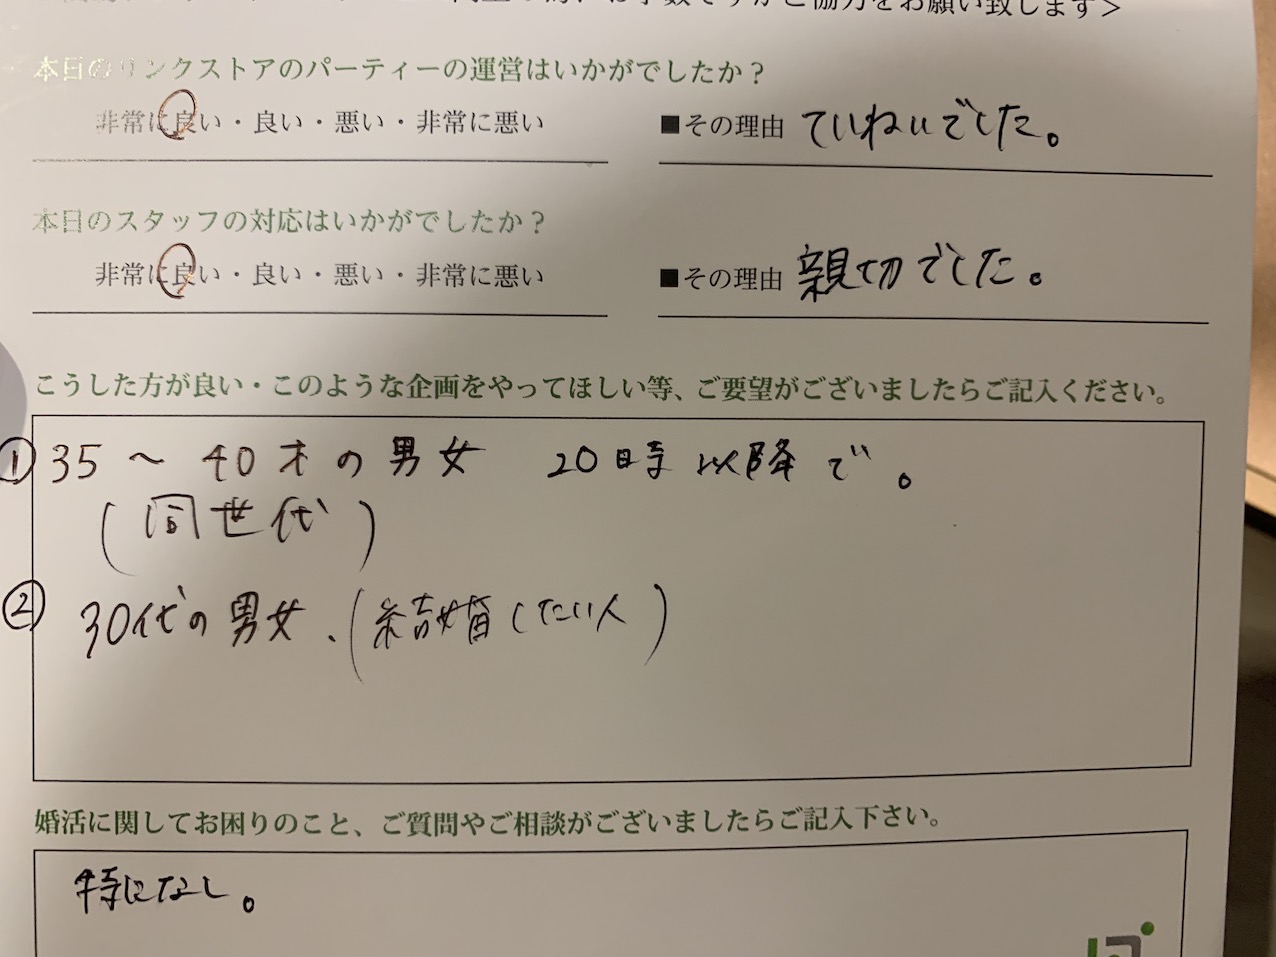 お願い致します＞
本日のリンクストアのパーティーの運営はいかがでしたか？
非常に良い・良い・悪い・非常に悪い ■その理由 ていねいでした。
本日のスタッフの対応はいかがでしたか？
非常に良い・良い・悪い・非常に悪い ■その理由 親切でした。
こうした方が良い・このような企画をやってほしい等、ご要望がございましたらご記入ください。
① 35～40才の男女 20時以降で。
(同世代)
② 30代の男女、(結婚したい人)
婚活に関してお困りのこと、ご質問やご相談がございましたらご記入下さい。
特になし。